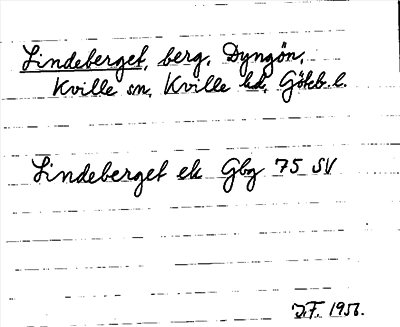 Lindeberget, berg, Dyngön,
Kville sn, Kville hd, Göteb. l.
Lindeberget ek Gbg 75 SV
J.F. 1956.